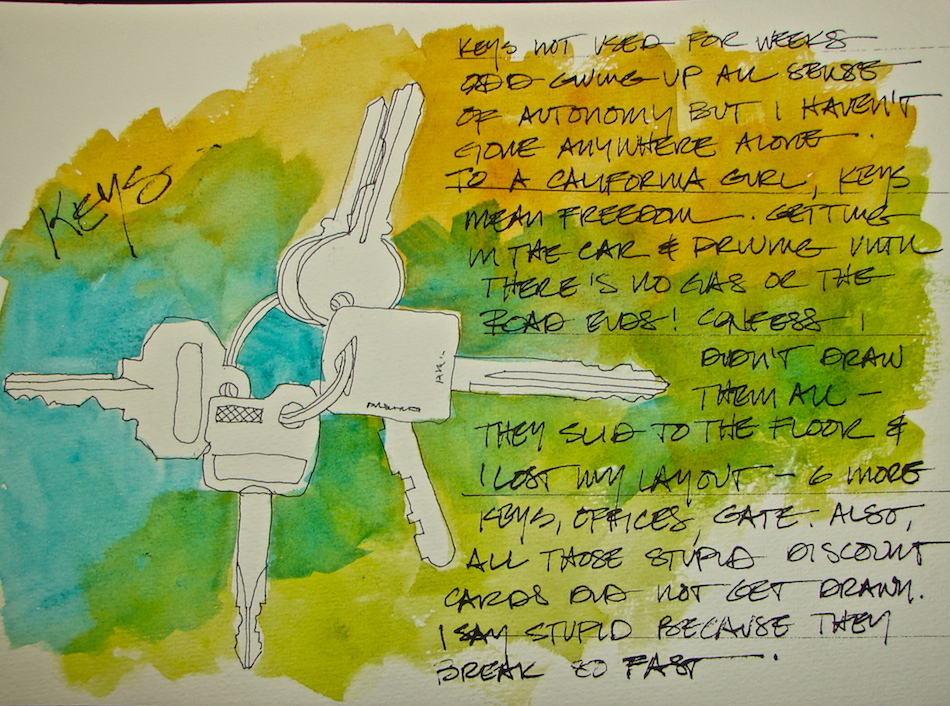 KEYS
KEYS NOT USED FOR WEEKS
ODD GIVING UP ALL SENSE
OF AUTONOMY BUT I HAVEN'T
GONE ANYWHERE ALONE.
TO A CALIFORNIA GIRL, KEYS
MEAN FREEDOM. GETTING
IN THE CAR & DRIVING UNTIL
THERE'S NO GAS OR THE
ROAD ENDS! CONFESS I
DIDN'T DRAW
THEM ALL —
THEY SLID TO THE FLOOR &
I LOST MY LAYOUT — 6 MORE
KEYS, OFFICES, GATE. ALSO,
ALL THOSE STUPID DISCOUNT
CARDS DID NOT GET DRAWN.
I SAY STUPID BECAUSE THEY
BREAK SO FAST.